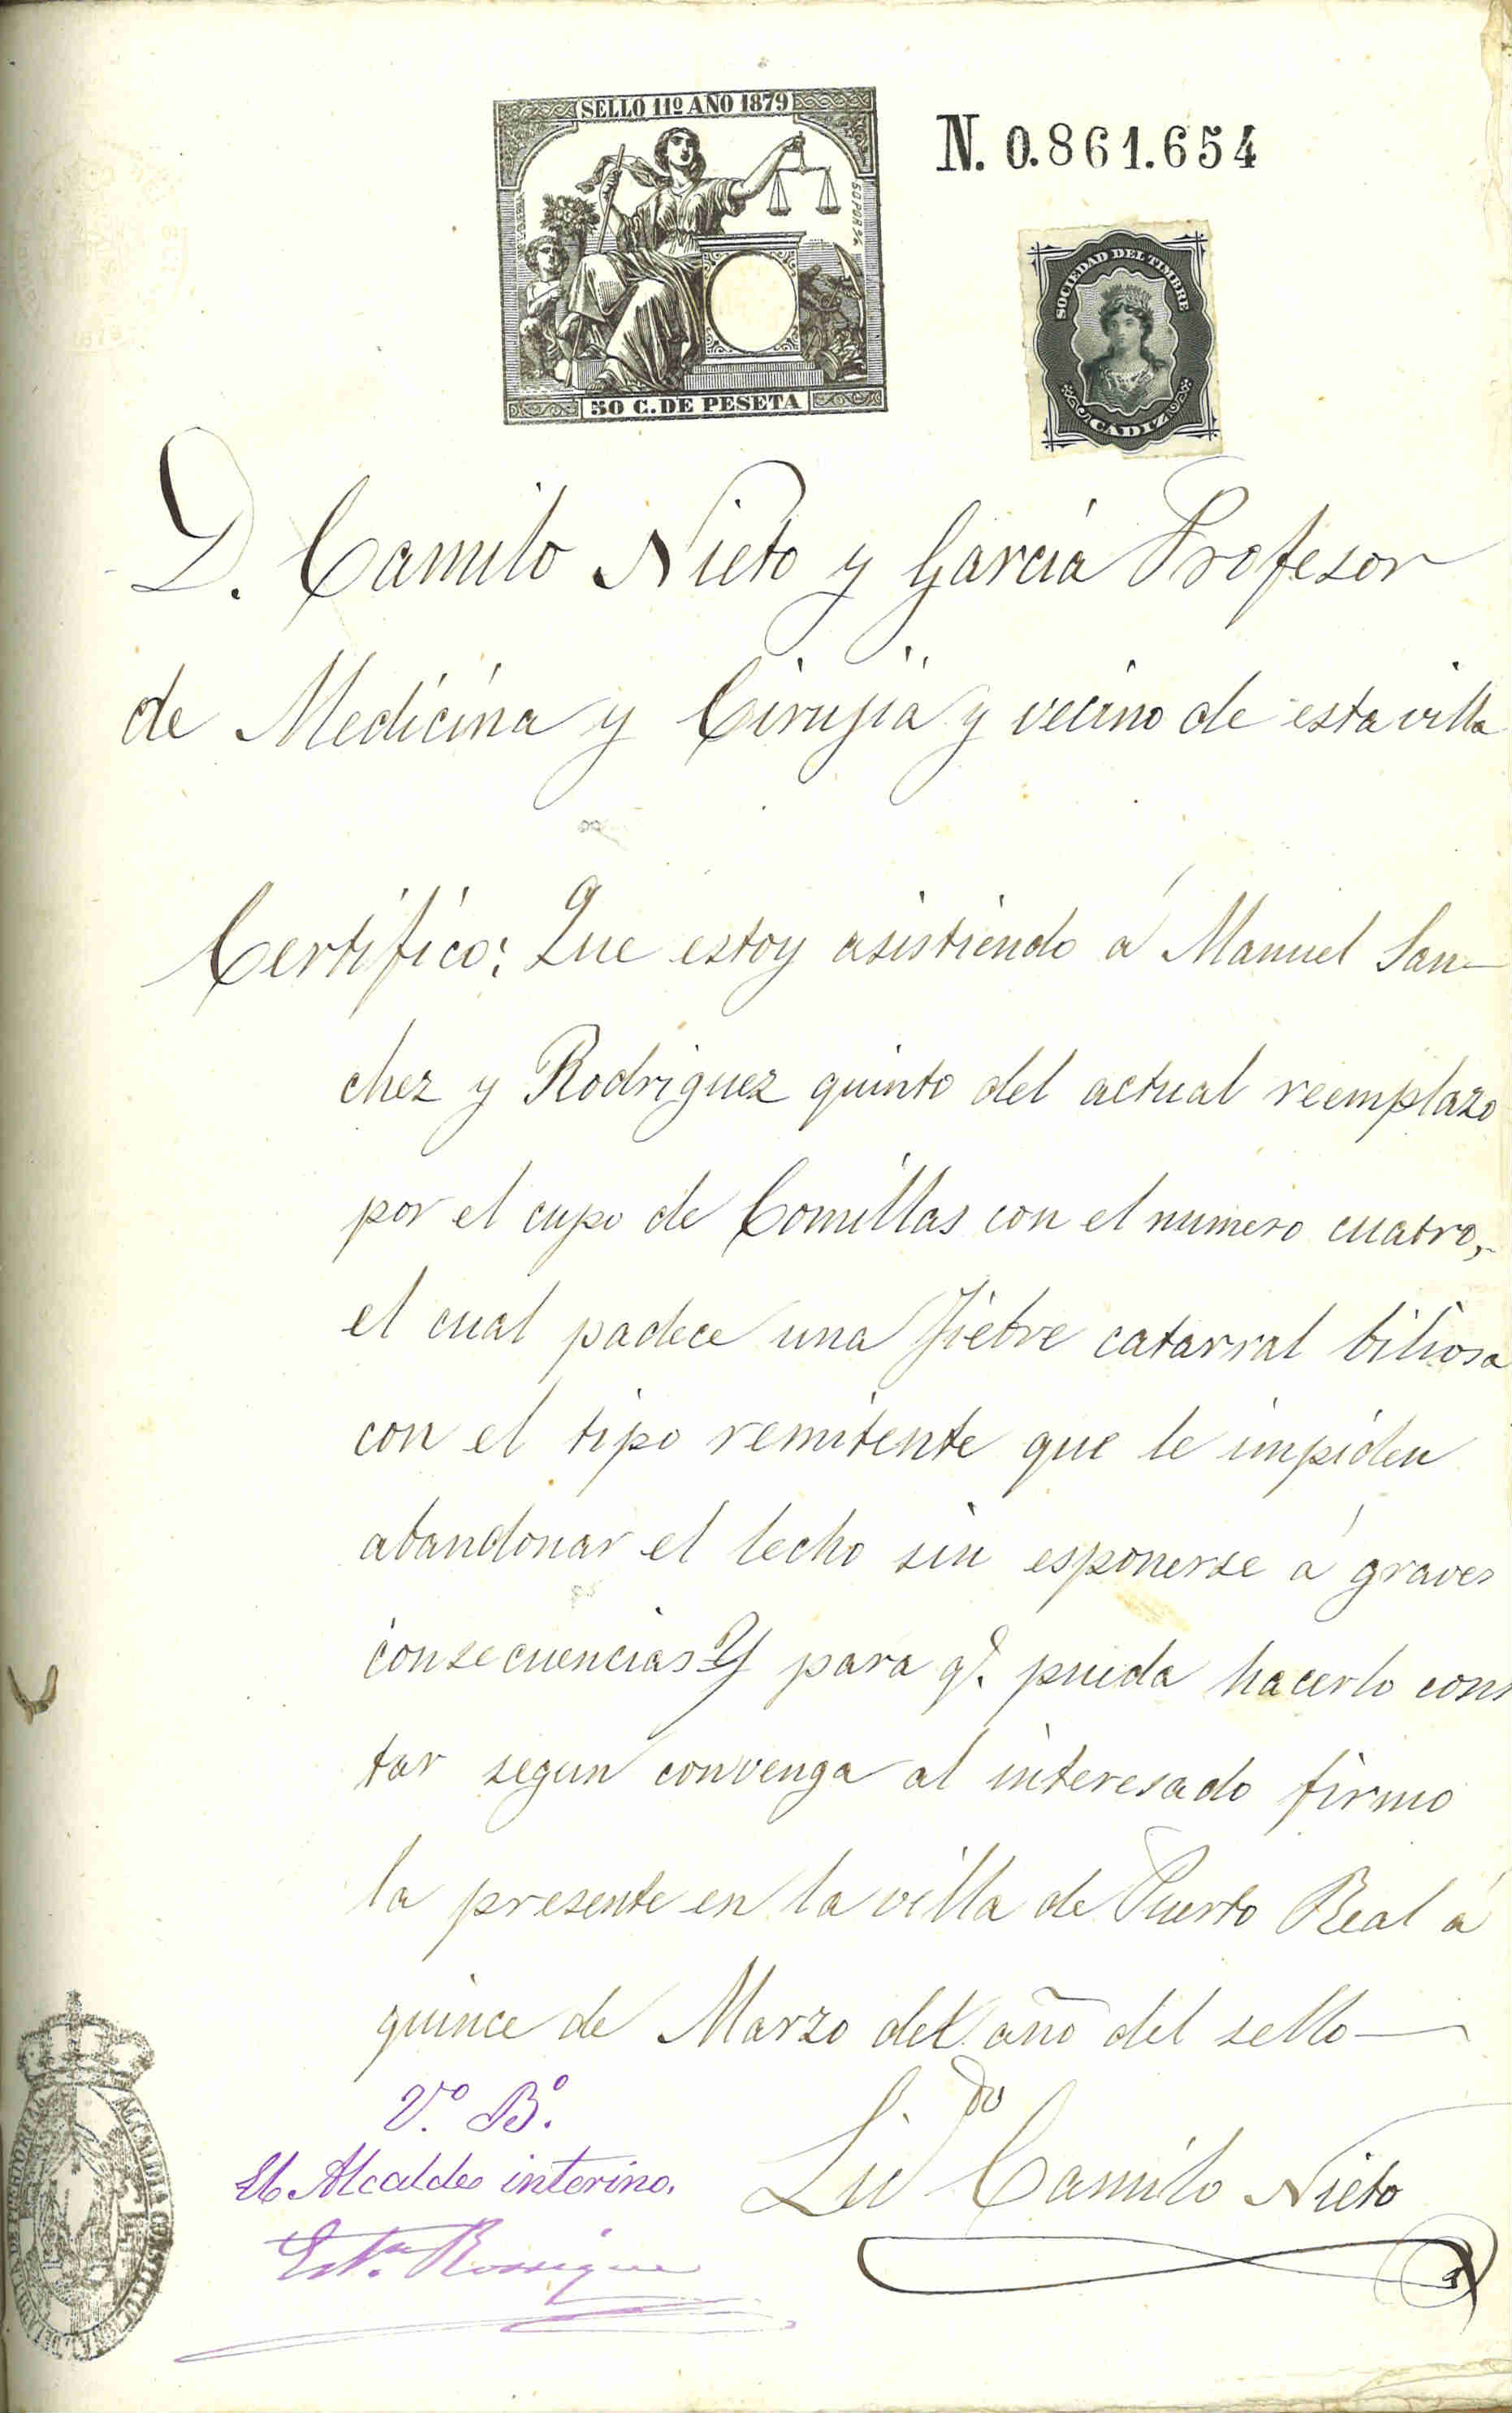 SELLO 11º AÑO 1879
50 POR %
50 C. DE PESETA
N. 0.861.654
SOCIEDAD DEL TIMBRE
CADIZ
D. Camilo Nieto y Garcia Profesor
de Medicina y Cirujia y vecino de esta villa
Certifico: Que estoy asistiendo á Manuel San-
chez y Rodriguez quinto del actual reemplazo
por el cupo de Comillas con el numero cuatro,
el cual padece una fiebre catarral biliosa
con el tipo remitente que le impiden
abandonar el lecho sin esponerse á graves
consecuencias Y para q.e pueda hacerlo cons
tar segun convenga al interesado firmo
la presente en la villa de Puerto Real á
quince de Marzo del año del sello
V.º B.º
El Alcalde interino.
Lic do Camilo Nieto
ALCALDIA CONSTITUCIONAL